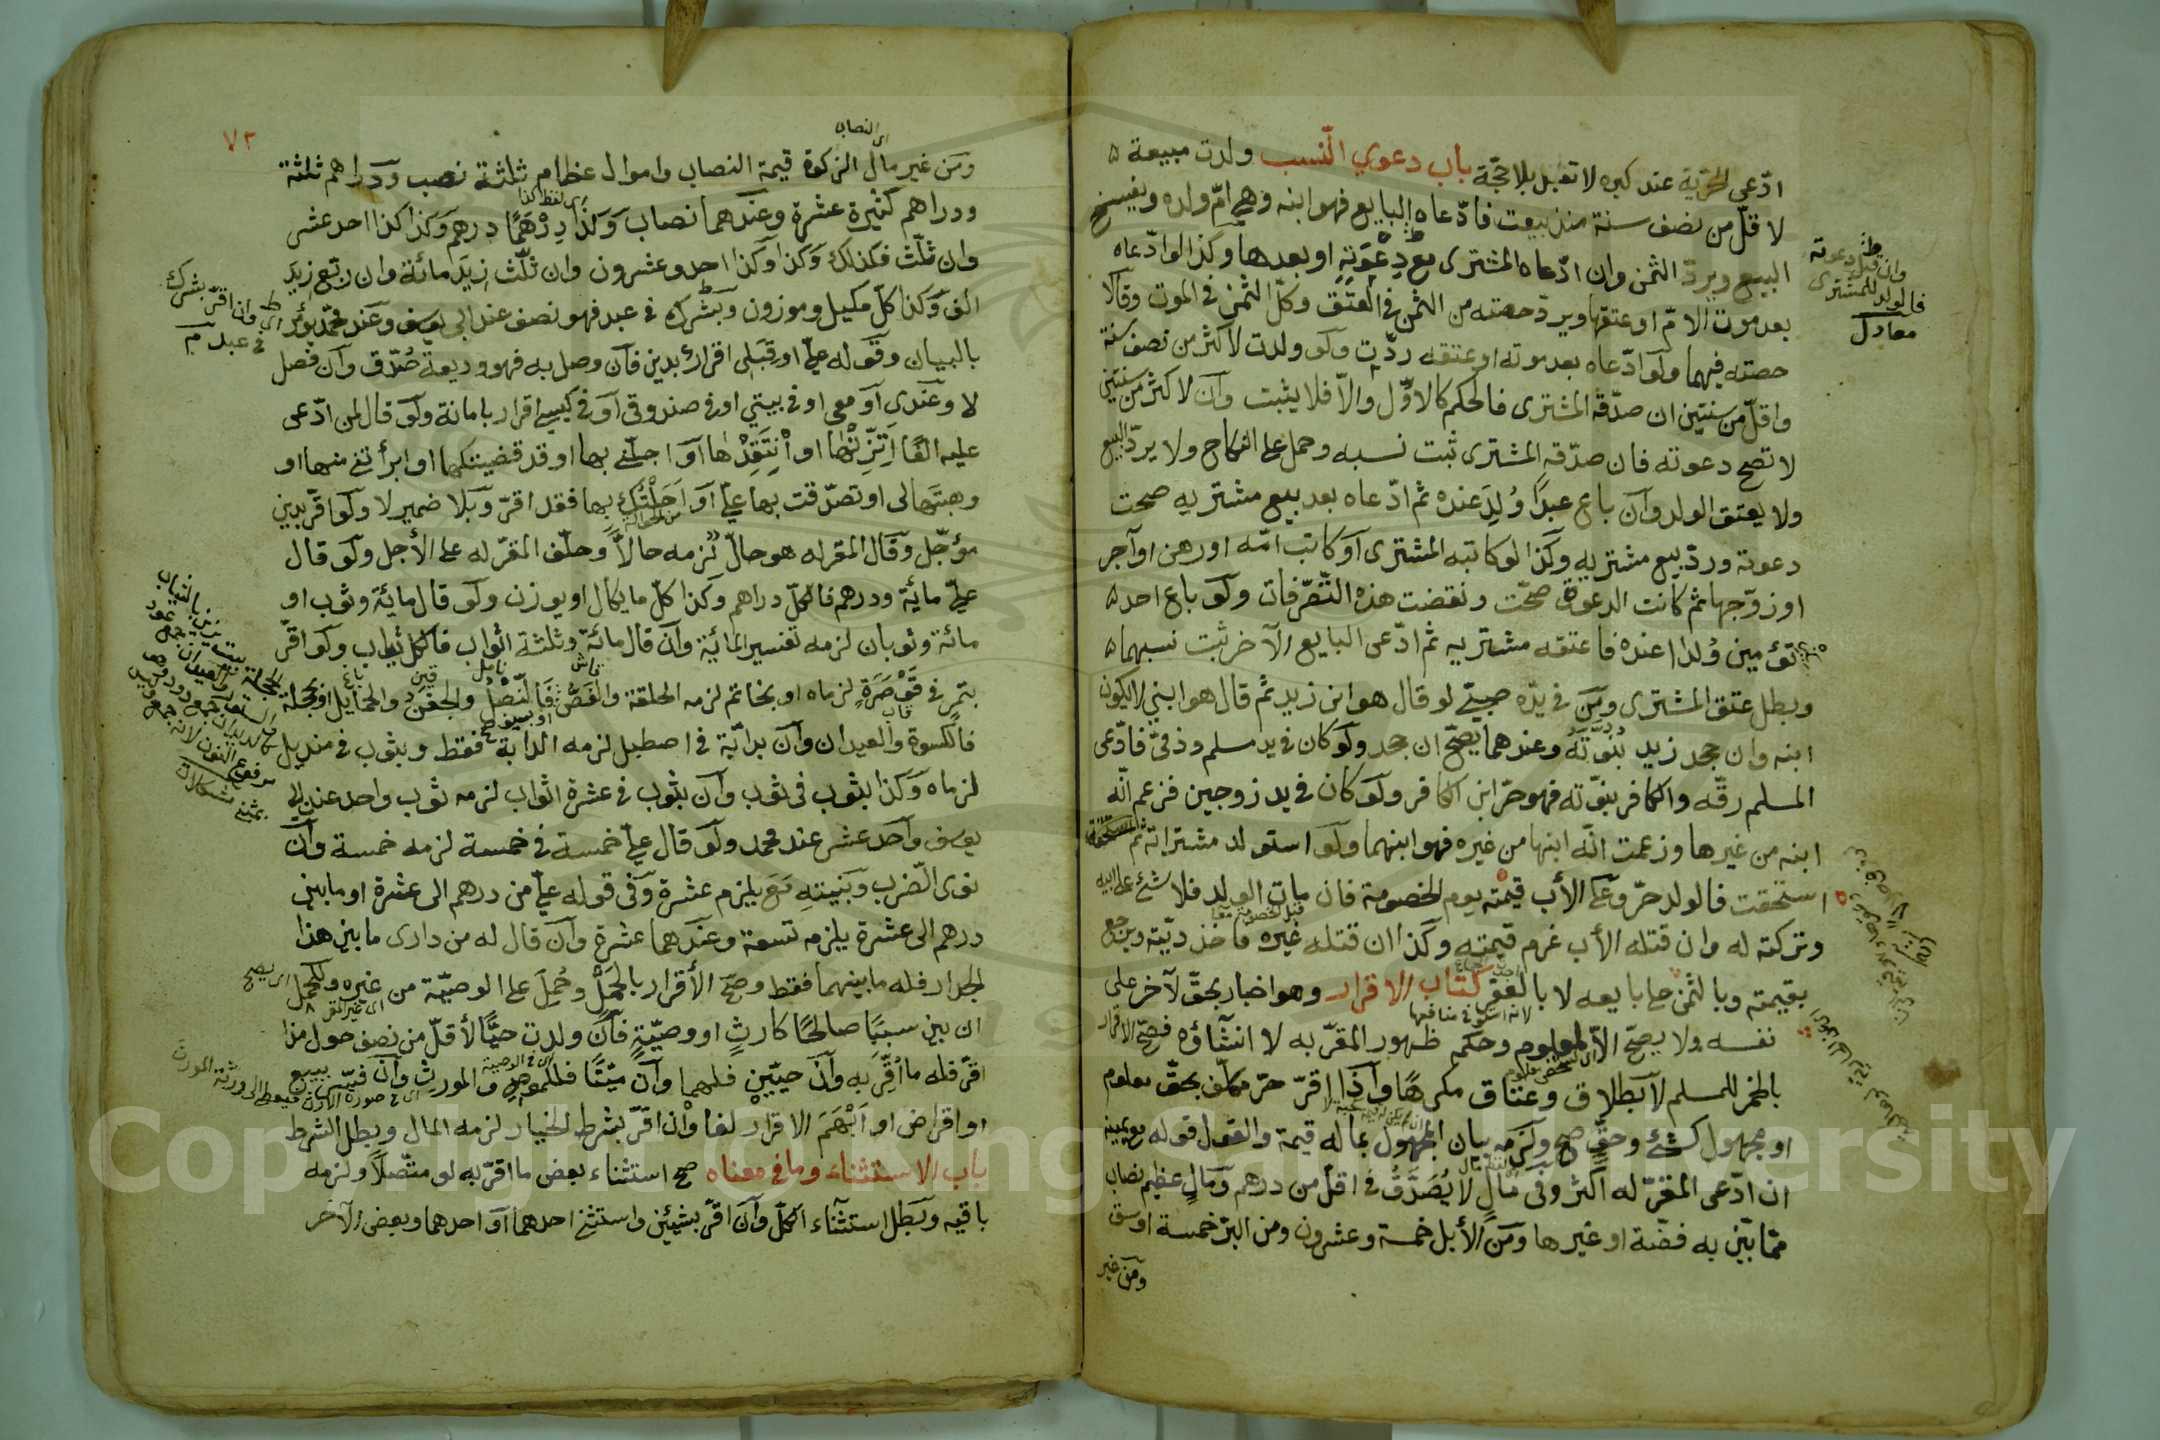 ادّعى الحرّية عند كبره لا تقبل بلا حجّة باب دعوي النّسب ولدت مبيعة
لا قلّ من نصف سنة منذ بيعت فادّعاه البايع فهو ابنه وهي امّ ولده ويفسخ
البيع ويردّ الثمن وان ادّعاه المشترى مع دِعْوَتِهِ او بعدها وكذا لو ادّعاه
بعد موت الامّ او عتقها ويردّ حصته من الثمن في العتق وكلّ الثمن في الموت وقالا
حصته فيهما ولو ادّعاه بعد موته او عتقه ردّت ولو ولدت لاكثر من نصف سنة
واقلّ من سنتين ان صدّقه المشترى فالحكم كالاوّل والّا فلا يثبت وان لاكثر من سنتين
لا تصح دعوته فان صدّقه المشترى ثبت نسبه وحمل على النكاح ولا يردّ البيع
ولا يعتق الولد وان باع عبدًا وُلِدَ عنده ثم ادّعاه بعد بيع مشتريه صحت
دعوته وردّ بيع مشتريه وكذا لو كاتبه المشترى او كاتب امّه او رهن او آجر
او زوّجها ثم كانت الدعوة صحّت ونقضت هذه التّصّرفات ولو باع احد
توءمين وُلدا عنده فاعتقه مشتريه ثم ادّعى البايع الآخر ثبت نسبهما
وبطل عتق المشترى ومَن في يدّه صبيّ لو قال هو ابن زيد ثم قال هو ابني لا يكون
ابنه وان جحد زيد بُنوّتَهُ وعندهما يصحّ ان جحد ولو كان في يد مسلم وذمّي فادّعى
المسلم رقّه والكافر بنوّته فهو حرّ ابن الكافر ولو كان في يد زوجين فزعم انّه
ابنه من غيرها وزعمت انّه ابنها من غيره فهو ابنهما ولو استولد مشتراته ثم
استحقت فالولد حرّ وعلى الأب قيمته يوم الخصومة فان مات الولد فلا شئ على ابيه
وتركته له وان قتله الأب غرم قيمته وكذا ان قتله غيره فاخذ ديّته ويرجع
بقيمته وبالثمن على بايعه لا بالعقر كتاب الاقرار وهو اخبار بحقّ لآخر على
نفسه ولا يصحّ الّا لمعلوم وحكمه ظهور المقرّ به لا انشاؤه فصحّ الاقرار
بالخمر للمسلم لا بطلاق وعتاق مكرهًا واذا اقرّ حرّ مكلّف بحقّ معلوم
او مجهول كشئ وحقّ صح ولزمه بيان المجهول بما له قيمة والقول قوله مع يمينه
ان ادّعى المقرّ له اكثر وفى مالٍ لا يُصَدَّقُ في اقلّ من درهم ومالٍ عظيم نصاب
ممّا بيّن به فضّة او غيرها ومن الأبل خمسة وعشرون ومن البرّ خمسة اوسق
ومن غير
وان قبل دعوته
فالولد للمشترى
معادل
٧٢
اى النصاب
ومن غير مال الزكوة قيمة النصاب واموال عظام ثلثة نصب ودراهم ثلثة
ودراهم كثيرة عشرة وعندهما نصاب وكذا دِرْهَمًا درهم وكذا كذا احد عشر
وان ثلّث فكذلك وكذا وكذا احد وعشرون وان ثلّث زيد مائة وان ربّع زيد
الف وكذا كلّ مكيل وموزون وبشرك في عبد فهو نصف عند ابى يوسف وعند محمّد يؤمر
بالبيان وقوله عليّ او قِبَلى اقرار بدين فان وصل به فهو وديعة صُدّق وان فصل
لا وعندى او معى او في بيتي او في صندوقى او في كيسى اقرار بامانة ولو قال لمن ادّعى
عليه الفًا اتّزِنْها او انتَقِدْها او اجّلنى بها او قد قضيتكها او ابرأتنى منها او
وهبتها لى او تصدّقت بها عليّ او اَحَلْتُكَ بها فقد اقرّ وبلا ضمير لا ولو اقرّ بدين
مؤجّل وقال المقر له هو حالّ لزمه حالاًّ وحلّف المقرّ له على الأجل ولو قال
عليّ مائة ودرهم فالكلّ دراهم وكذا كلّ ما يكال او يوزن ولو قال مائة وثوب او
مائة وثوبان لزمه تفسير المائة وان قال مائة وثلثة اثواب فالكل ثياب ولو اقرّ
بتمرٍ في قَوْصَرَةٍ لزماه او بخاتم لزمه الحلقة والفصّ او بسيف فالنّصْلُ والجفن والحمايل او بحجلة
فالكسوة والعيدان وان بدابّة في اصطبل لزمه الدابّة فقط وبثوب في منديل
لزماه وكذا بثوب في ثوب وان بثوب في عشرة اثواب لزمه ثوب واحد عند ابى
يوسف واحد عشر عند محمد ولو قال عليّ خمسة في خمسة لزمه خمسة وان
نوى الضّرب وبنيته مع يلزم عشرة وفى قوله عليّ من درهم الى عشرة او ما بين
درهم الى عشرة يلزمه تسعة وعندهما عشرة وان قال له من دارى ما بين هذا
الجدار فله ما بينهما فقط وصحّ الأقرار بالحَمْلِ وحُمِلَ على الوصيّة من غيره وللحمل
ان بيّن سببًا صالحًا كارثٍ او وصيّةٍ فان ولدت حيًّا لأقلّ من نصف حول مذ
اقرّ فله ما اُقِرّ به وان حيّين فلهما وان ميّتًا فللموصى والمورث وان فسّر ببيع
او اقراض او اَبْهَمَ الاقرار لغا وان اقرّ بشرط الخيار لزمه المال وبطل الشرط
باب الاستثناء وما فى معناه صحّ استثناء بعض ما اقرّ به لو متّصلاً ولزمه
باقيه وبطل استثناء الكلّ وان اقرّ بشيئين واستثنى احدهما او احدهما وبعض الآخر
اى وان اقرّ بشرك
في عبد